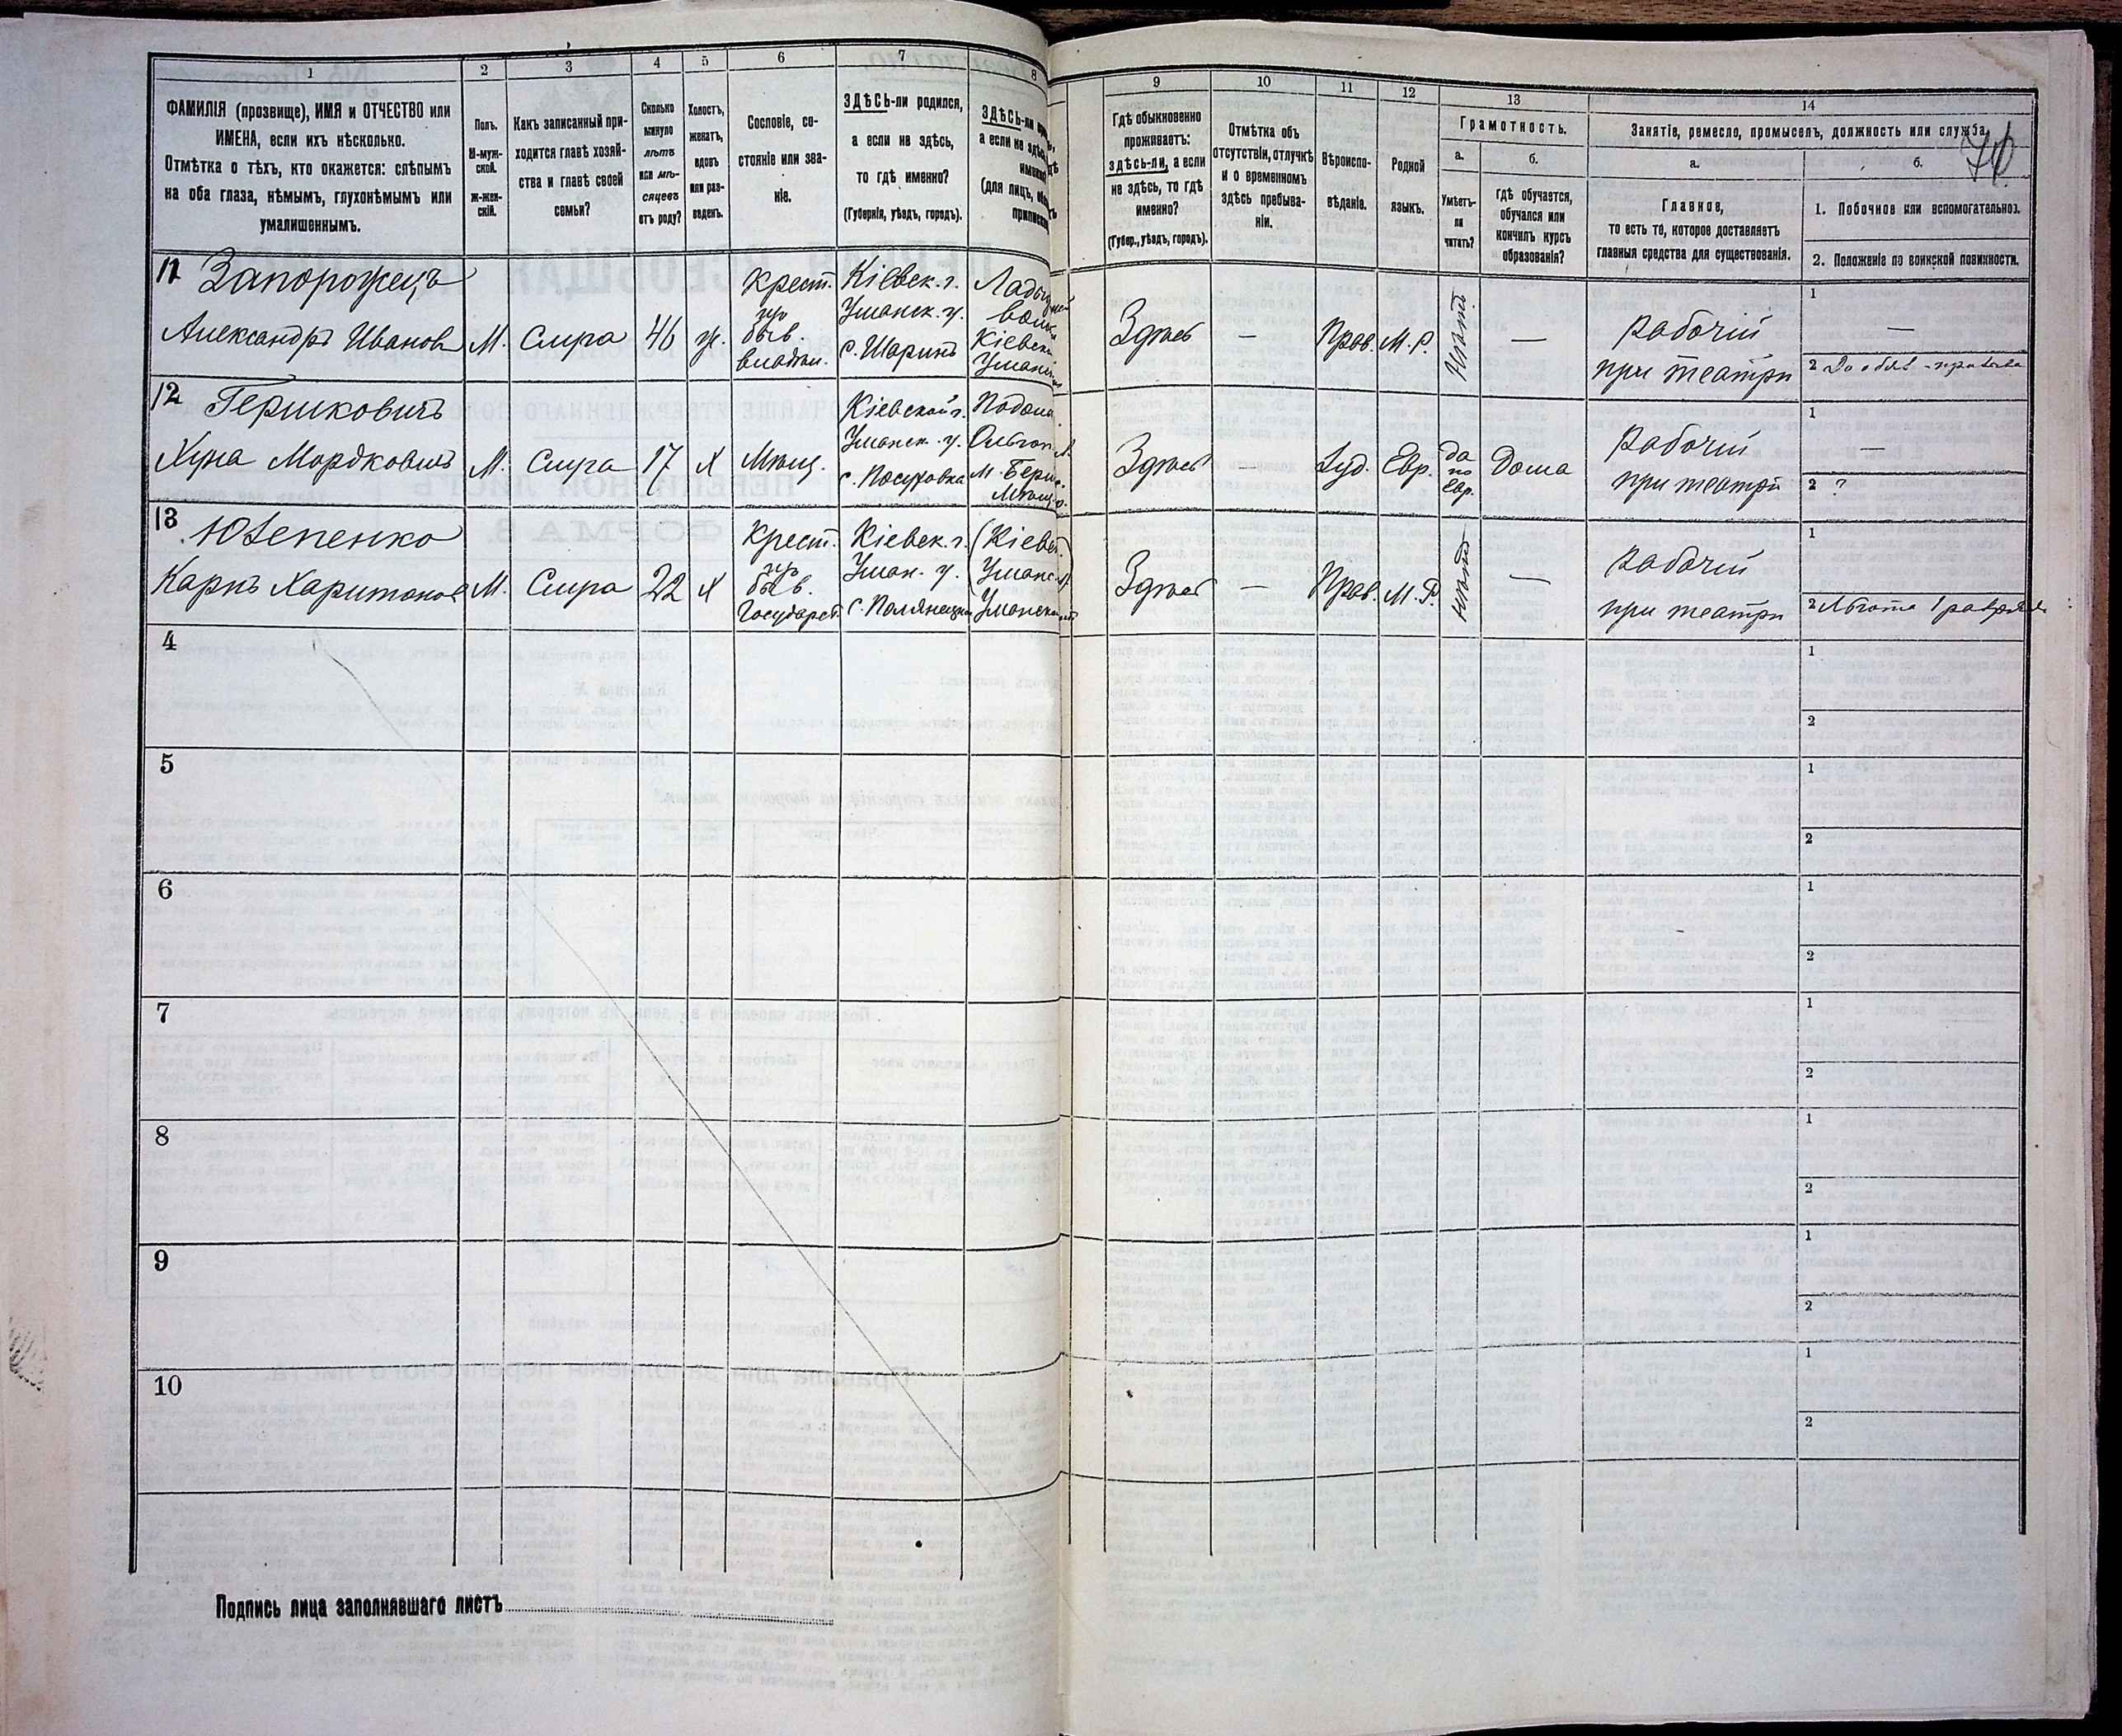 1
2
3
4
5
6
7
8
9
10
11
12
13
14
ФАМИЛІЯ (прозвище), ИМЯ и ОТЧЕСТВО или
ИМЕНА, если ихъ нѣсколько.
Отмѣтка о тѣхъ, кто окажется: слѣпымъ
на оба глаза, нѣмымъ, глухонѣмымъ или
умалишеннымъ.
Полъ.
М-муж-
ской.
Ж-жен-
скій.
Какъ записанный при-
ходится главѣ хозяй-
ства и главѣ своей
семьи?
Сколько
минуло
лѣтъ
или мѣ-
сяцевъ
отъ роду?
Холостъ,
женатъ,
вдовъ
или раз-
веденъ.
Сословіе, со-
стояніе или зва-
ніе.
ЗДѢСЬ-ли родился,
а если не здѣсь,
то гдѣ именно?
(Губернія, уѣздъ, городъ).
ЗДѢСЬ-ли
а если не здѣсь,
(для лицъ,
Гдѣ обыкновенно
проживаетъ:
здѣсь-ли, а если
не здѣсь, то гдѣ
именно?
(Губер., уѣздъ, городъ).
Отмѣтка объ
отсутствіи, отлучкѣ
и о временномъ
здѣсь пребыва-
ніи.
Вѣроиспо-
вѣданіе.
Родной
языкъ.
Грамотность.
а.
б.
Умѣетъ-
ли
читать?
Гдѣ обучается,
обучался или
кончилъ курсъ
образованія?
Занятіе, ремесло, промыселъ, должность или служба.
а.
б.
Главное,
то есть то, которое доставляетъ
главныя средства для существованія.
1. Побочное или вспомогательное.
2. Положеніе по воинской повинности.
11 Запорожецъ
Александръ Иванов
М.
Слуга
46
ж.
Крест.
из
быв.
владѣл.
Кіевск. г.
Уманск. у.
с. Шаринъ
Кіевск
Уманс
Здѣсь
—
Прав.
М. Р.
Нѣтъ
—
Рабочій
при театрѣ
1
—
2
12 Гершковичъ
Хуна Мордковичъ
М.
Слуга
17
Х
Мѣщ.
Кіевской г.
Уманск. у.
с. Посуховка
Здѣсь
—
Іуд.
Евр.
да
по
евр.
Дома
Рабочій
при театрѣ
1
—
2 ?
13
Карпъ Харитонов
М.
Слуга
22
Х
Крест.
из
быв.
Государст.
Кіевск. г.
Уман. у.
Здѣсь
—
Прав.
М. Р.
Нѣтъ
—
Рабочій
при театрѣ
1
2 Льгота 1 разряда
4
1
2
5
1
2
6
1
2
7
1
2
8
1
2
9
1
2
10
1
2
Подпись лица заполнявшаго листъ